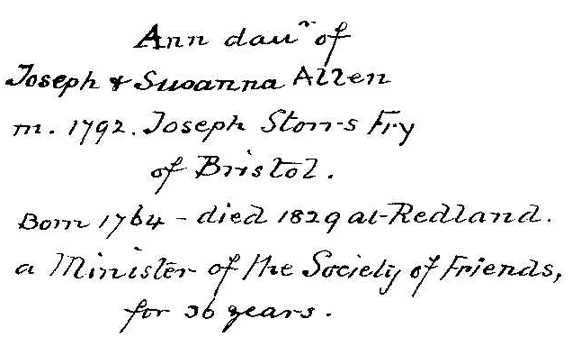 Ann dau^r of
Joseph & Susanna Allen
m. 1792. Joseph Storrs Fry
of Bristol.
Born 1764 – died 1829 at Redland.
a Minister of the Society of Friends,
for 36 years.